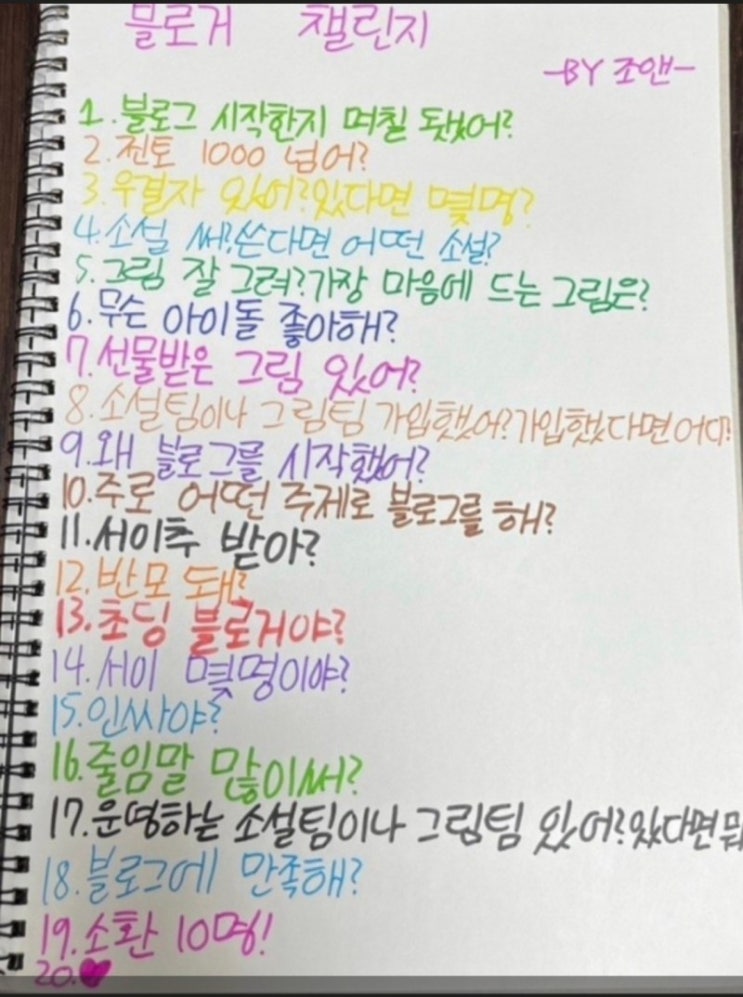 블로거 챌린지
-BY 조앤-
1. 블로그 시작한지 며칠 됐어?
2. 전토 1000 넘어?
3. 우결자 있어? 있다면 몇명?
4. 소설 써? 쓴다면 어떤 소설?
5. 그림 잘 그려? 가장 마음에 드는 그림은?
6. 무슨 아이돌 좋아해?
7. 선물받은 그림 있어?
8. 소설팀이나 그림팀 가입했어? 가입했다면 어디?
9. 왜 블로그를 시작했어?
10. 주로 어떤 주제로 블로그를 해?
11. 서이추 받아?
12. 반모 돼?
13. 초딩 블로거야?
14. 서이 몇명이야?
15. 인싸야?
16. 줄임말 많이써?
17. 운영하는 소설팀이나 그림팀 있어? 있다면 뭐
18. 블로그에 만족해?
19. 소환 10명!
20. ♥